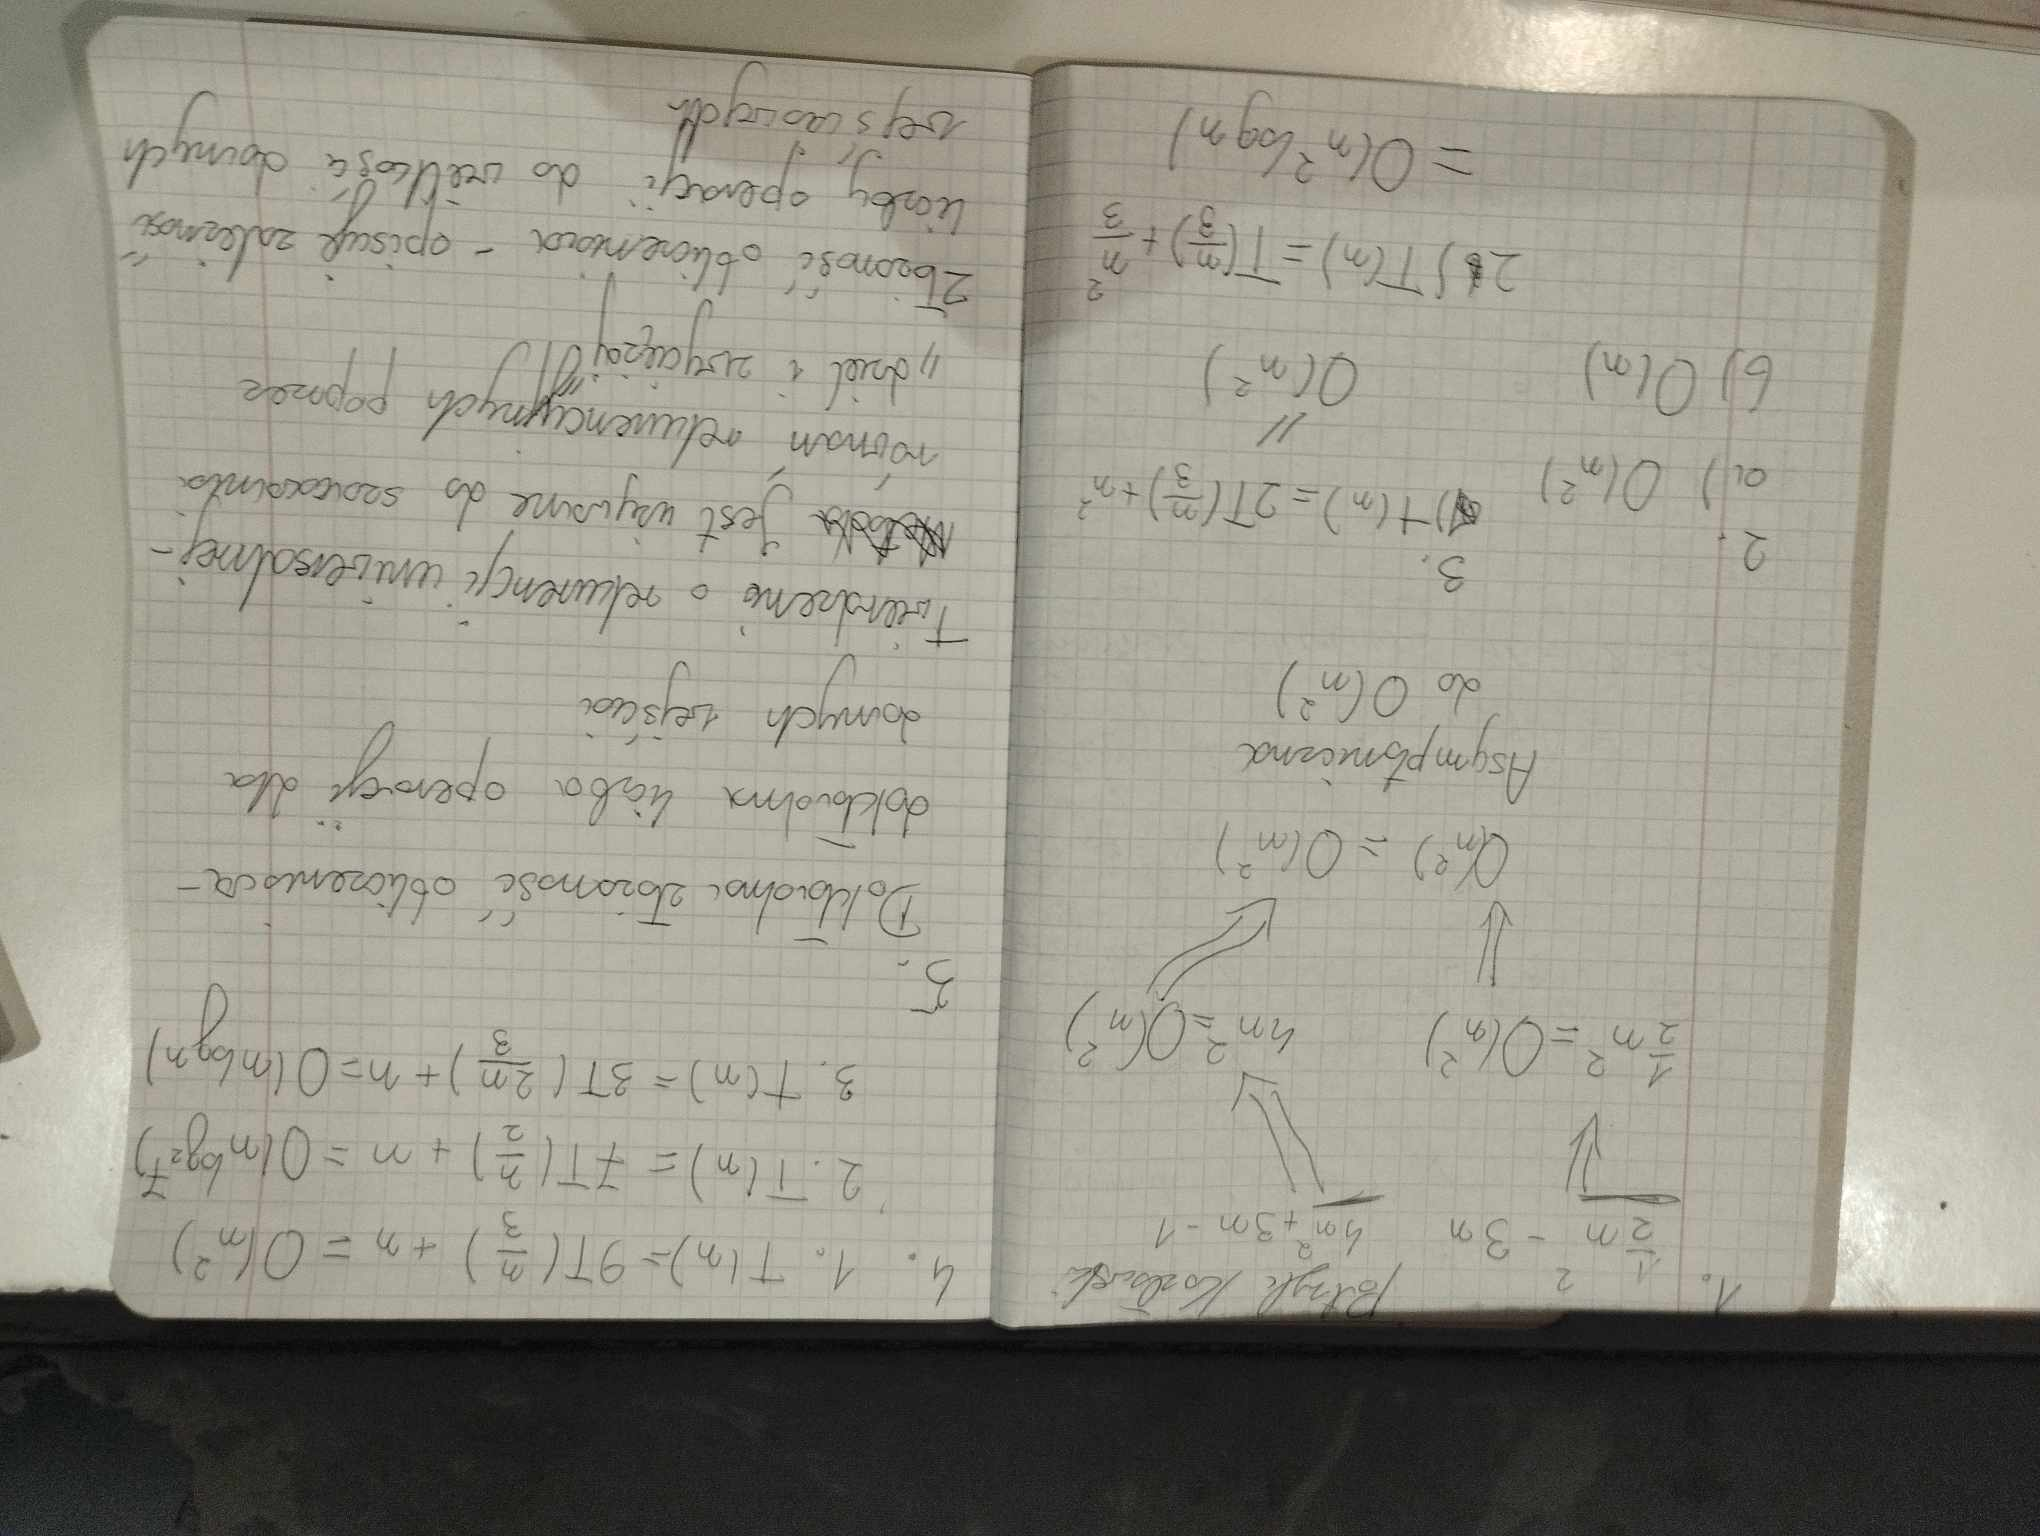 1. ½n² - 3n
4n² + 3n - 1
½n² = O(n²)
4n² = O(n²)
O(n²) = O(n²)
Asymptoniczna
do O(n²)
2.
a) O(n²)
b) O(n)
3.
1) T(n) = 2T(n/3) + n²
=
O(n²)
2) T(n) = T(n/3) + n²/3
= O(n² log n)
4. 1. T(n) = 9T(n/3) + n = O(n²)
2. T(n) = 7T(n/2) + n = O(n^log₂7)
3. T(n) = 3T(2n/3) + n = O(n log n)
5.
Dokładna złożoność obliczeniowa -
dokładna liczba operacji dla
danych wejścia
Twierdzenie o rekurencji uniwersalnej -
jest używane do szacowania
równań rekurencyjnych poprzez
„dziel i zwyciężaj"
Złożoność obliczeniowa - opisuje zależność
liczby operacji do wielkości danych
wejściowych